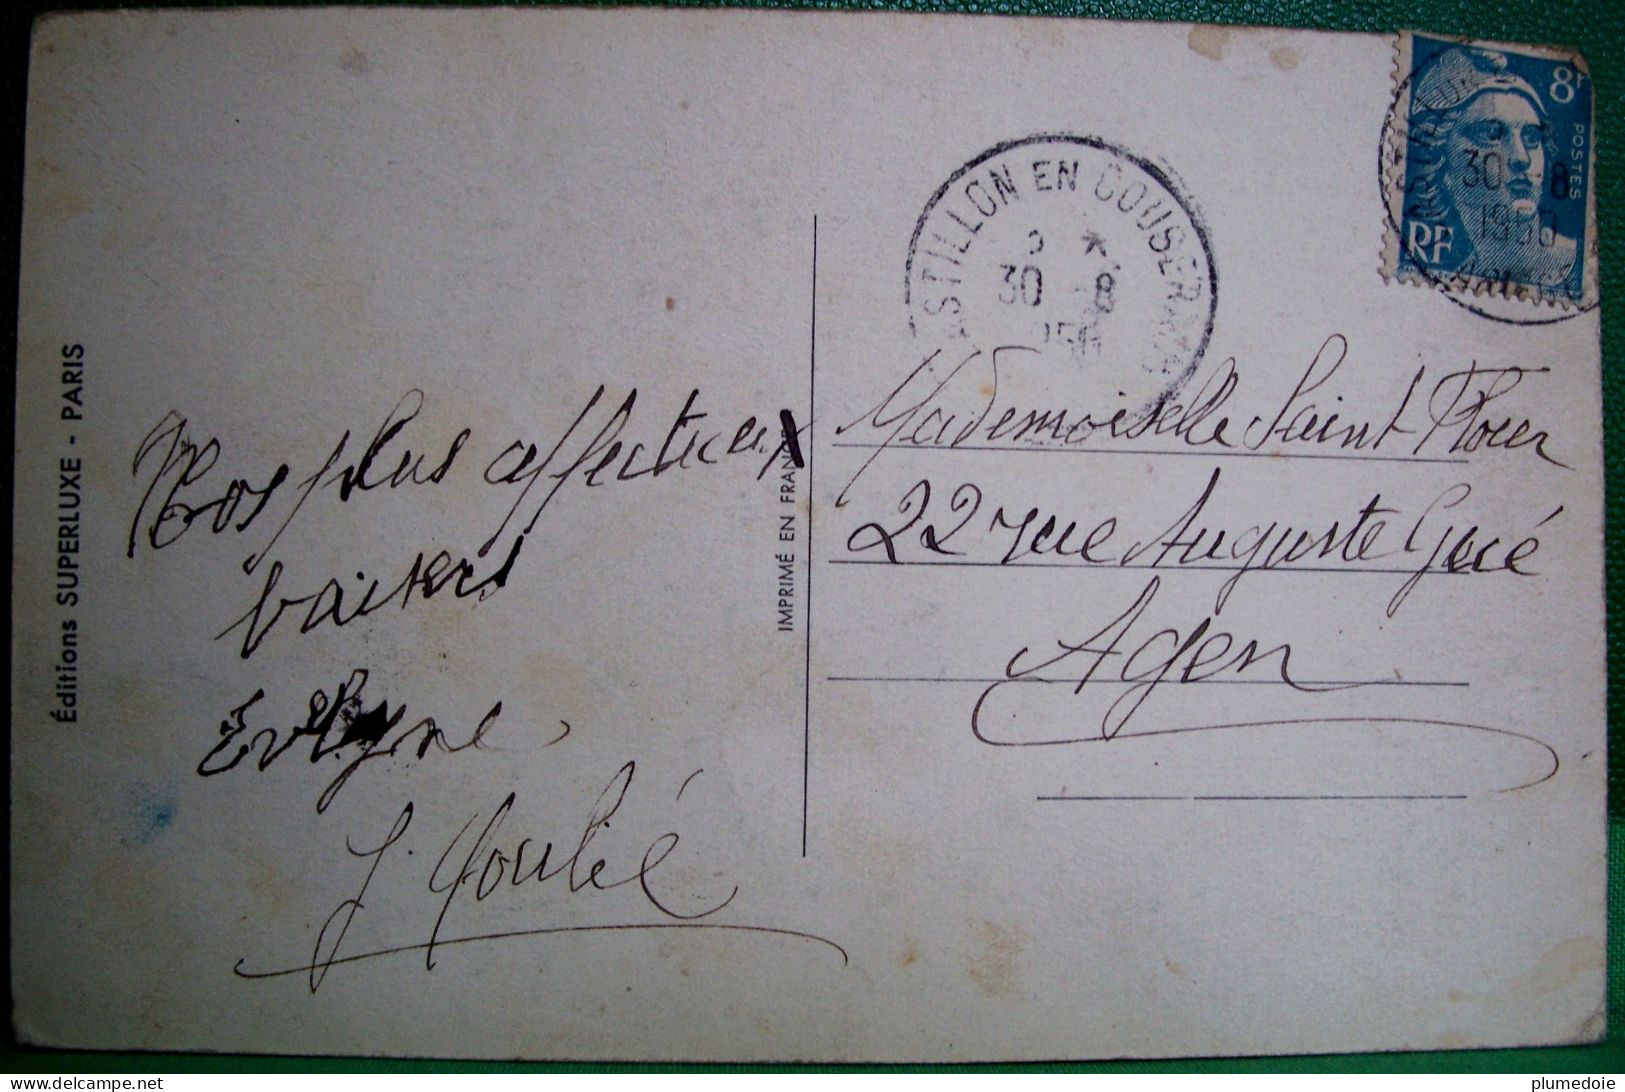 Éditions SUPERLUXE - PARIS
Nos plus affectueux
baisers
Evelyne
J. Moulié
IMPRIMÉ EN FRANCE
ASTILLON EN COUSERANS
30 -8
1950
8F
POSTES
RF
30 8
1950
Mademoiselle Saint Flour
22 rue Auguste Gué
Agen
plumedoie